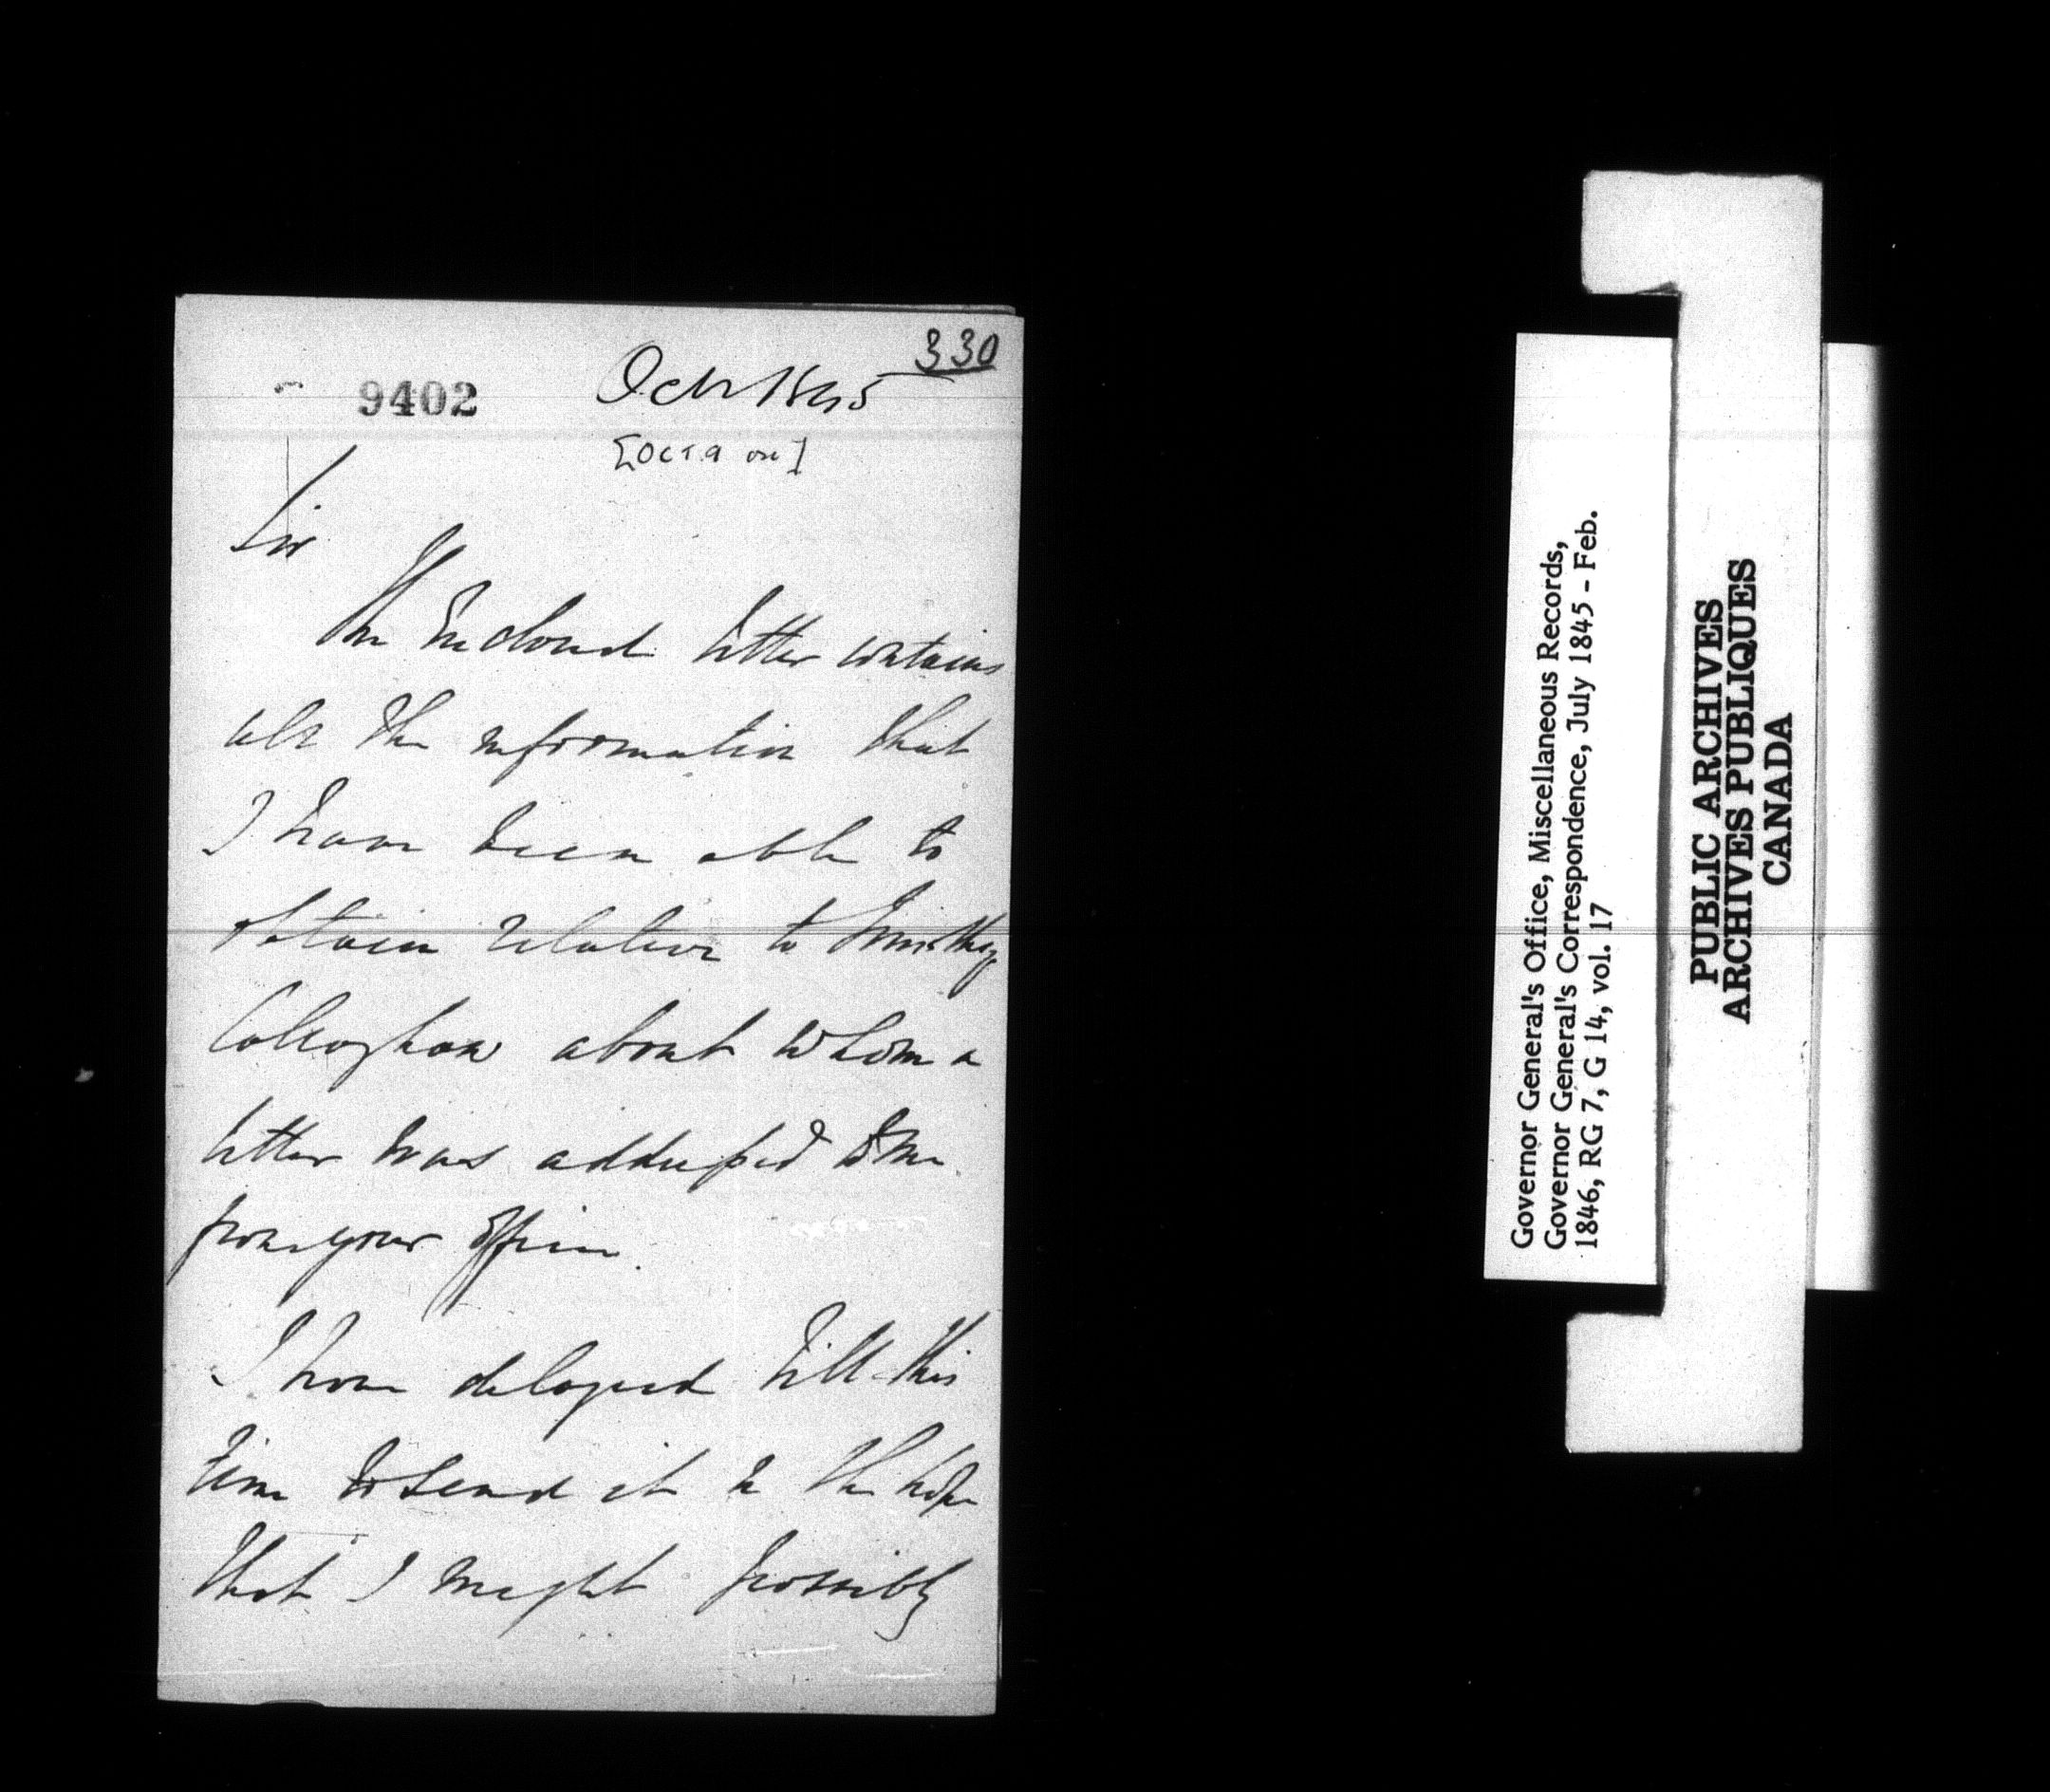 330
9402
Octr 1845
Sir
The Enclosed letter contains
all the information that
I have been able to
obtain relative to Timothy
Callaghan about whom a
letter was addressed to me
from your office.
I have delayed till this
time to send it in the hope
that I might possibly
Governor General's Office, Miscellaneous Records,
Governor General's Correspondence, July 1845 - Feb.
1846, RG 7, G 14, vol. 17
PUBLIC ARCHIVES
ARCHIVES PUBLIQUES
CANADA